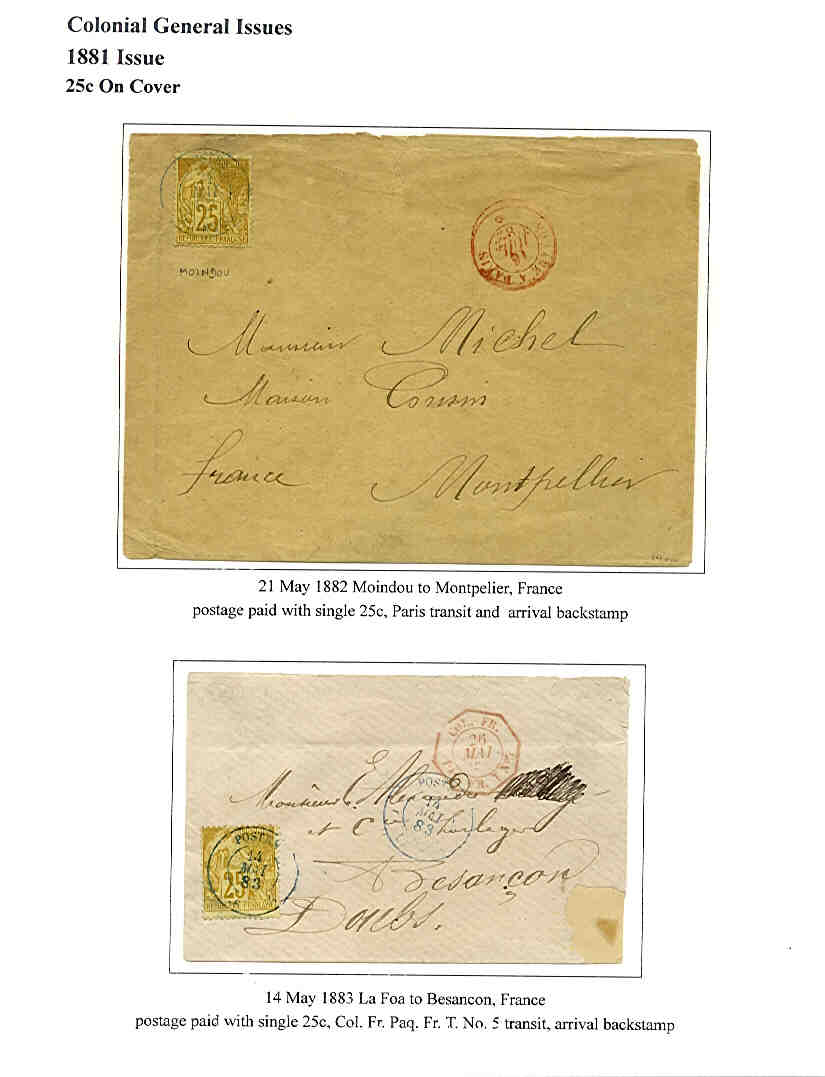 Colonial General Issues
1881 Issue
25c On Cover
25
MOINDOU
Monsieur Michel
Maison Cousin
France Montpellier
21 May 1882 Moindou to Montpelier, France
postage paid with single 25c, Paris transit and arrival backstamp
COL. FR.
26
MAI
POSTES
14
MAI
83
Monsieur
et Cie horloger
POSTES
14
MAI
83
25
Besançon
Doubs.
14 May 1883 La Foa to Besancon, France
postage paid with single 25c, Col. Fr. Paq. Fr. T. No. 5 transit, arrival backstamp